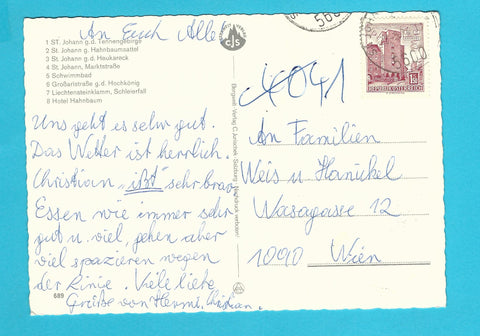 An Euch Alle
1 ST. Johann g.d. Tennengebirge
2 St. Johann g. Hahnbaumsattel
3 St. Johann g.d. Heukareck
4 St. Johann, Marktstraße
5 Schwimmbad
6 Großarlstraße g.d. Hochkönig
7 Liechtensteinklamm, Schleierfall
8 Hotel Hahnbaum
Uns geht es sehr gut.
Das Wetter ist herrlich.
Christian "ißt" sehr brav
Essen wie immer sehr
gut u. viel, gehen aber
viel spazieren wegen
der Linie. Viele liebe
Grüße von Hermi, Christian.
689
cjs
Bergwelt-Verlag C. Jurischek, Salzburg Nachdruck verboten!
4041
560
5600
1.50
REPUBLIK ÖSTERREICH
An Familien
Weis u Hanickel
Wasagasse 12
1090 Wien